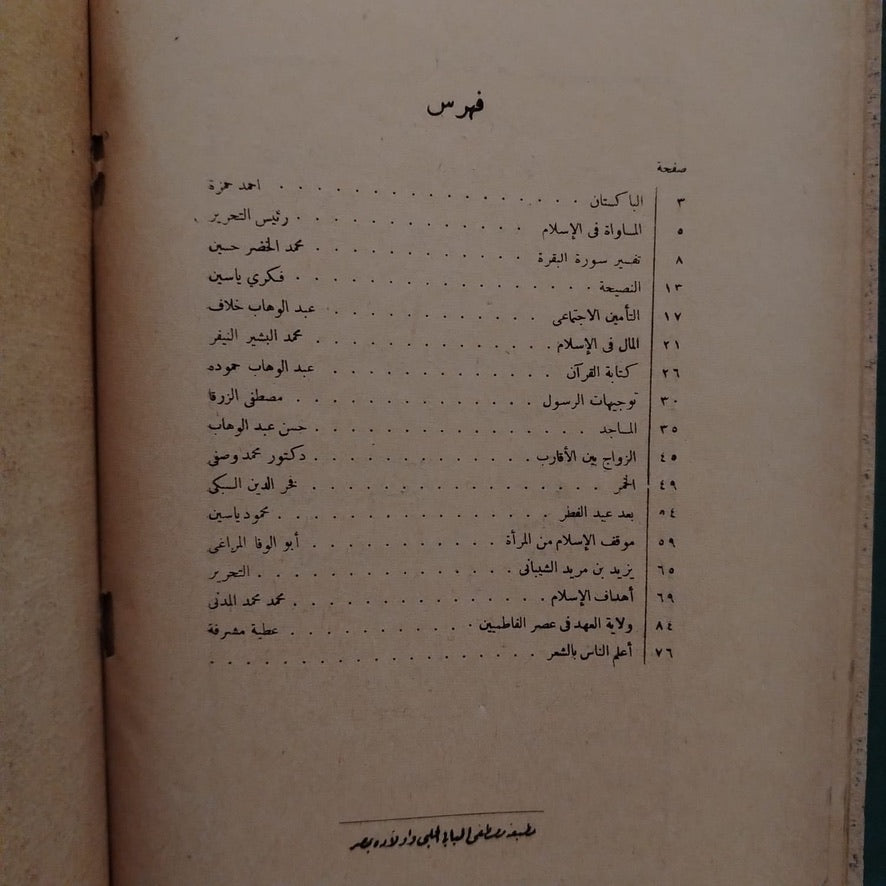 فهرس
صفحة
٣ الباكستان . . . . . . . . . . . . . . . . . احمد حمزة
٥ المساواة فى الإسلام . . . . . . . . . . . . . رئيس التحرير
٨ تفسير سورة البقرة . . . . . . . . . . . . محمد الخضر حسين
١٣ النصيحة . . . . . . . . . . . . . . . . فكري ياسين
١٧ التأمين الاجتماعى . . . . . . . . . . . . عبد الوهاب خلاف
٢١ المال فى الإسلام . . . . . . . . . . . . . محمد البشير النيفر
٢٦ كتابة القرآن . . . . . . . . . . . . عبد الوهاب حموده
٣٠ توجيهات الرسول . . . . . . . . . . . . . مصطفى الزرقا
٣٥ المساجد . . . . . . . . . . . . . . . حسن عبد الوهاب
٤٥ الزواج بين الأقارب . . . . . . . . . . . . دكتور محمد وصفى
٤٩ الخمر . . . . . . . . . . . . . . . . فخر الدين السبكى
٥٤ بعد عيد الفطر . . . . . . . . . . . . . . . محمود ياسين
٥٩ موقف الإسلام من المرأة . . . . . . . . . . . أبو الوفا المراغى
٦٥ يزيد بن مريد الشيبانى . . . . . . . . . . . . . . التحرير
٦٩ أهداف الإسلام . . . . . . . . . . . . . . محمد محمد المدنى
٨٤ ولاية العهد فى عصر الفاطميين . . . . . . . . . . عطية مشرفة
٧٦ أعلم الناس بالشعر . . . . . . . . . . . . . . . . . .
مطبعة مصطفى البابي الحلبي وأولاده بمصر